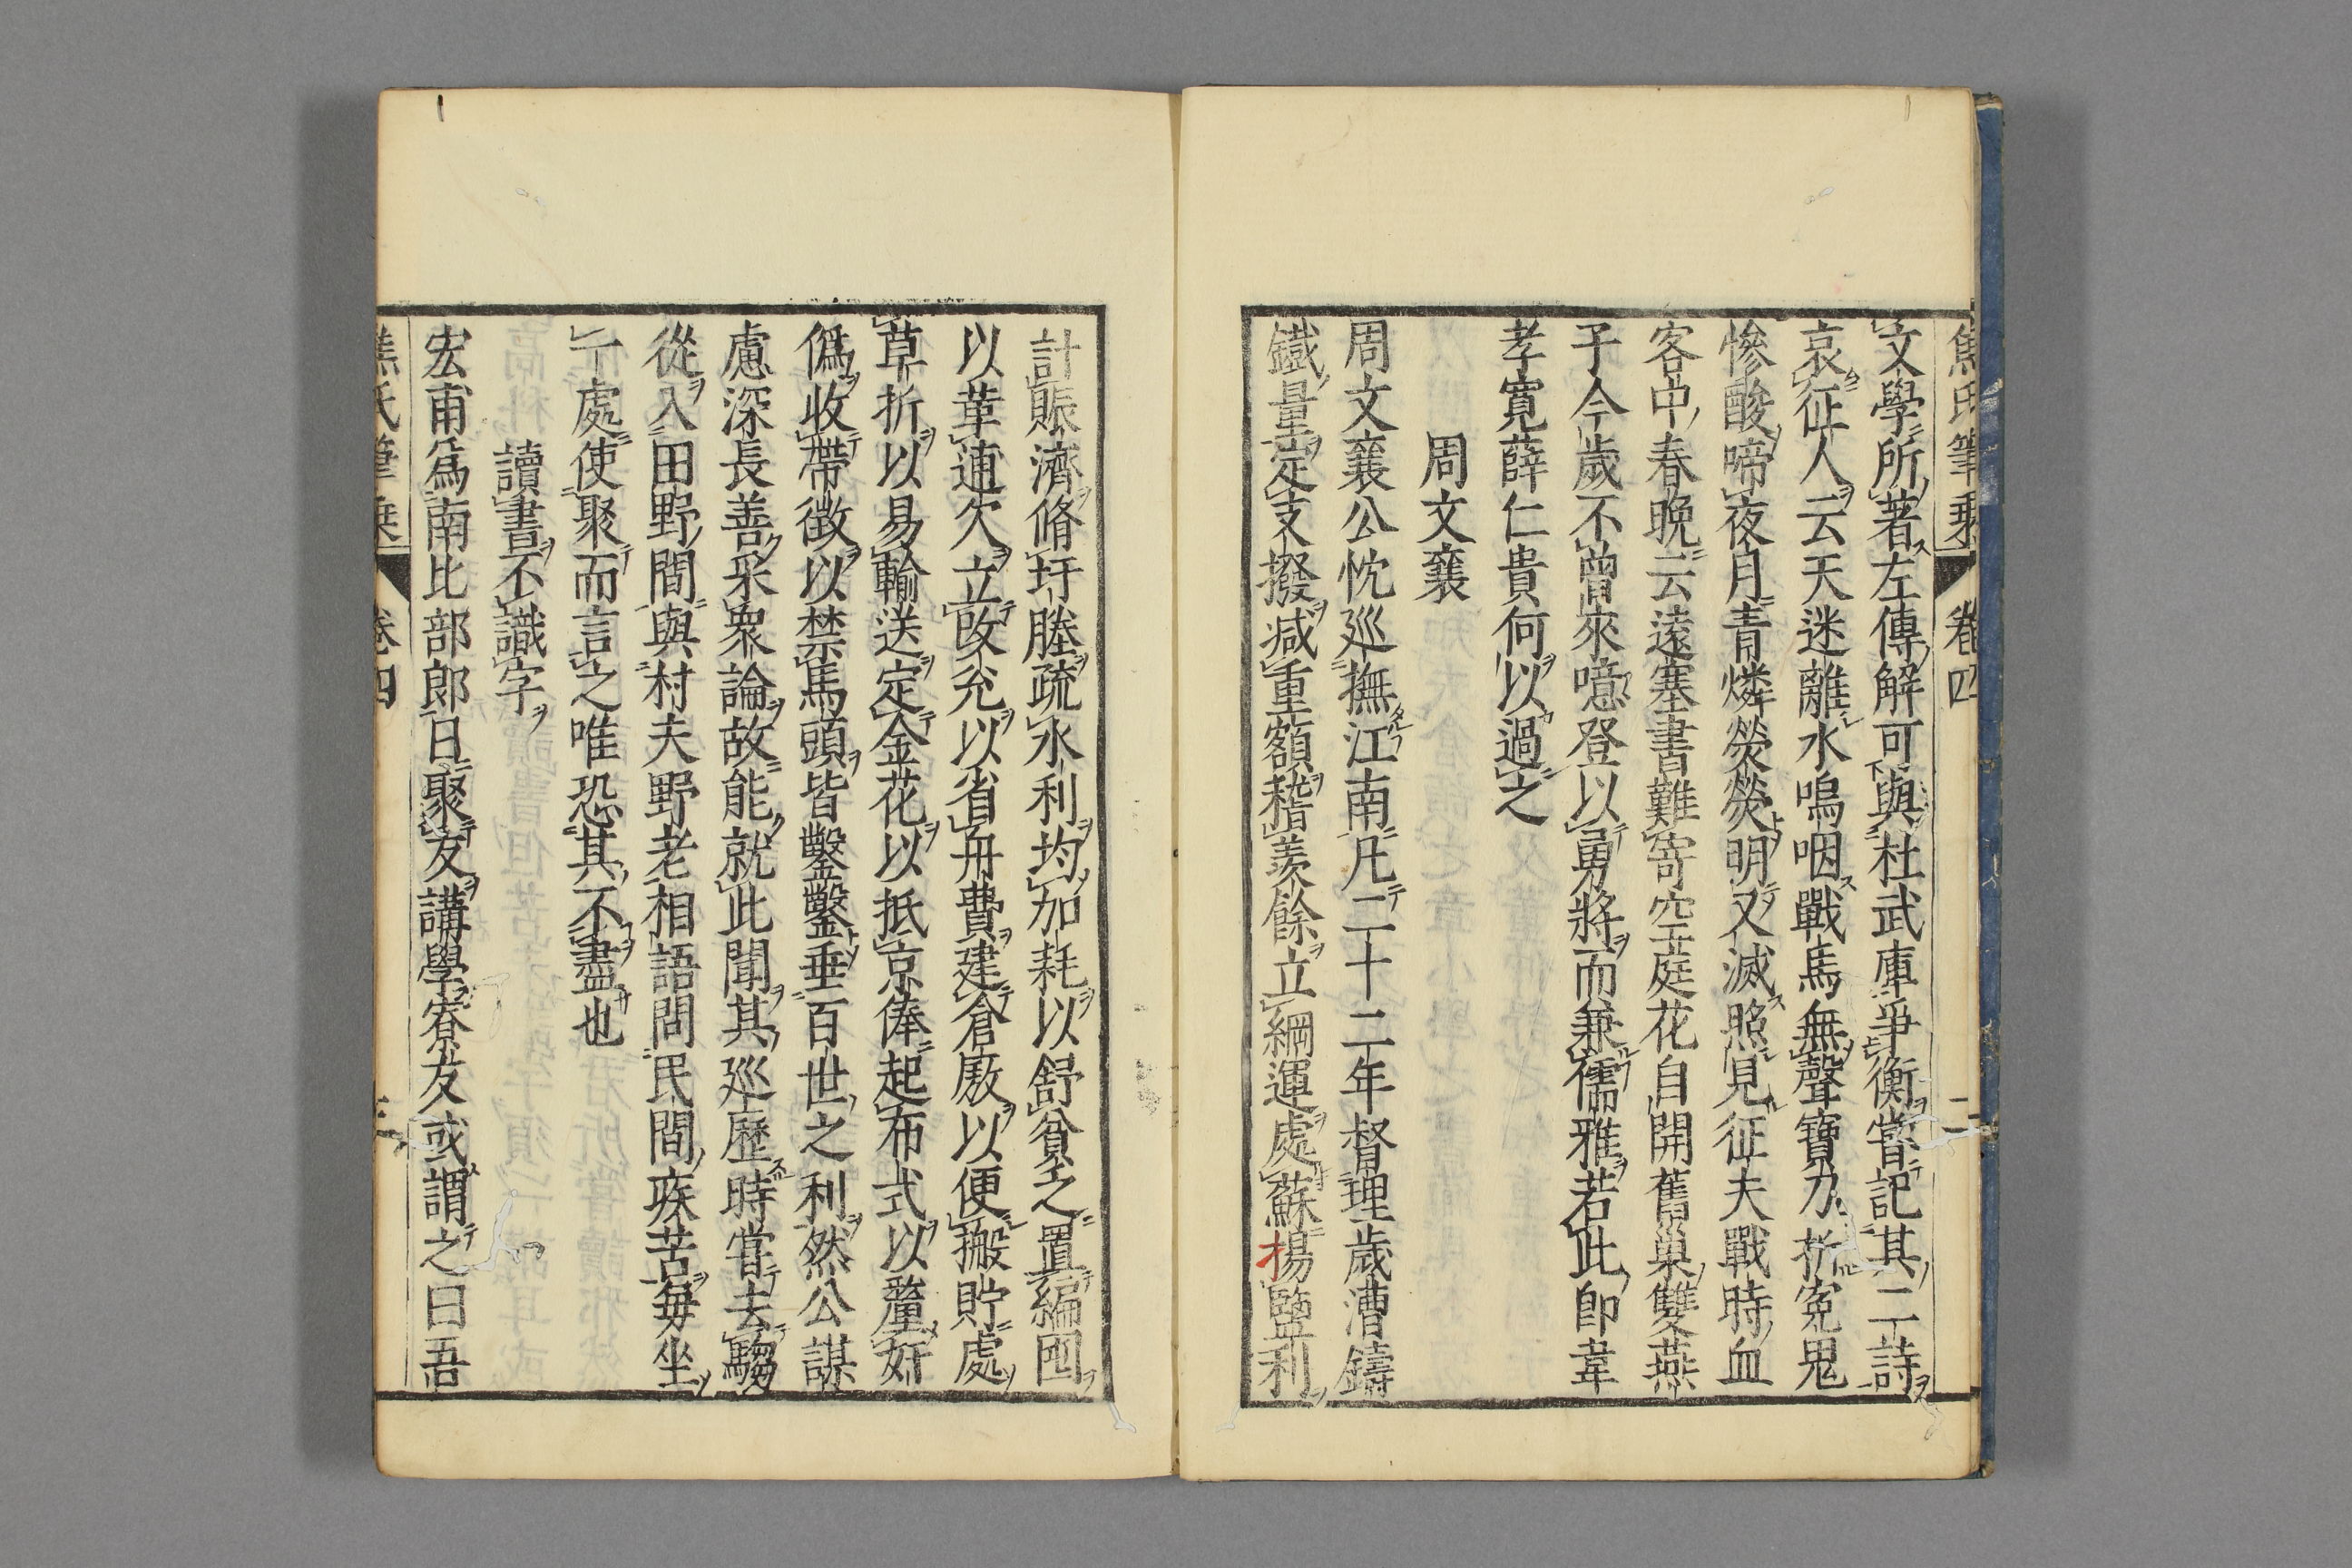 焦氏筆乗 卷四 二
文學所著左傳解可與杜武庫爭衡甞記其二詩
哀征人云天迷離水嗚咽戰馬無聲寶刀折寃鬼
慘酸啼夜月青燐熒熒明又滅照見征夫戰時血
客中春晩云遠塞書難寄空庭花自開舊巢雙燕
子今歲不曾來噫登以勇將而兼儒雅若此卽韋
孝寛薛仁貴何以過之
周文襄
周文襄公忱廵撫江南凡二十二年督理歲漕鑄
鐵量定支撥减重額稽羨餘立綱運處蘇揚鹽利
計賑濟脩圩塍疏水利均加耗以舒貧乏置編囤
以革逋欠立改兊以省舟費建倉厫以便搬貯處
草折以易輸送定金花以抵京俸起布式以釐奸
僞收帶徴以禁馬頭皆鑿鑿垂百世之利然公謀
慮深長善采衆論故能就此聞其廵歷時甞去騶
從入田野間與村夫野老相語問民間疾苦毎坐
一處使聚而言之唯恐其不盡也
讀書不識字
宏甫爲南比部郎日聚友講學寮友或謂之曰吾
焦氏筆乗 卷四